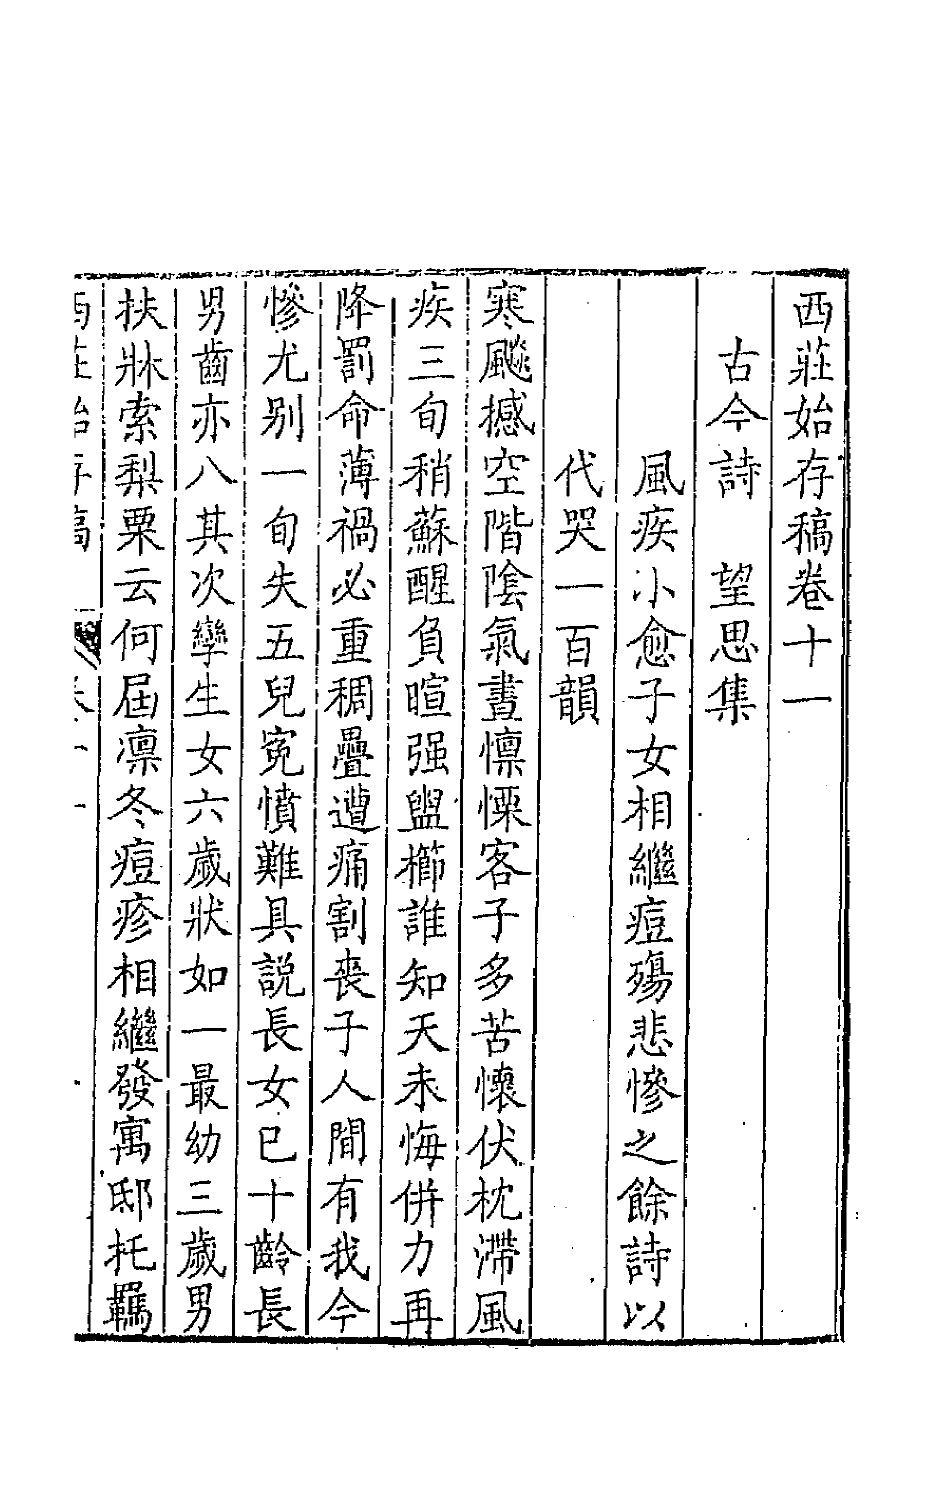 西莊始存稿卷十一
古今詩　望思集
風疾小愈子女相繼痘殤悲慘之餘詩以
代哭一百韻
寒飈撼空階陰氣晝懍慄客子多苦懷伏枕滯風
疾三旬稍蘇醒負暄强盥櫛誰知天未悔併力再
降罰命薄禍必重稠疊遭痛割喪子人間有我今
慘尤别一旬失五兒寃憤難具説長女已十齡長
男齒亦八其次孿生女六歲狀如一最幼三歲男
扶牀索梨栗云何屆凛冬痘疹相繼發寓邸托羈